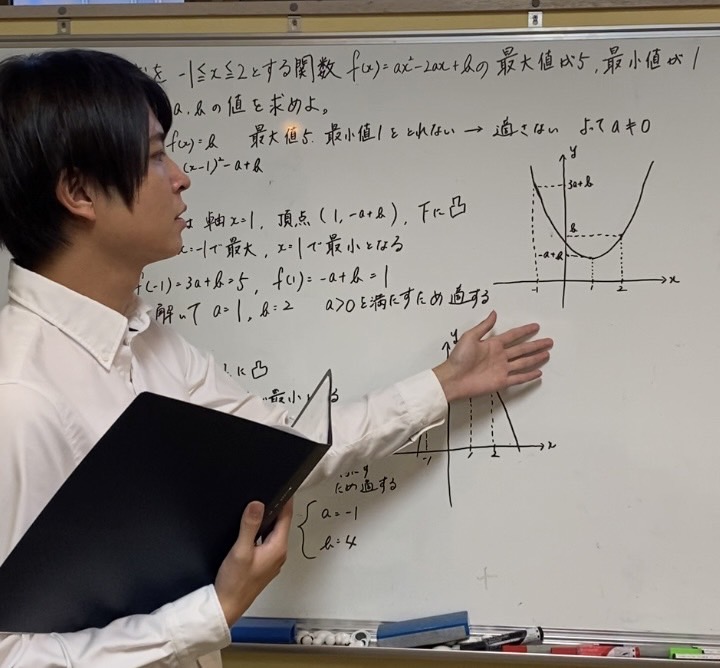 を -1≦x≦2とする関数 f(x)=ax²-2ax+bの最大値が5,最小値が1
a, bの値を求めよ。
f(x)=b 最大値5,最小値1をとれない → 適さない よって a≠0
(x-1)²-a+b
は 軸x=1, 頂点(1,-a+b), 下に凸
x=-1で最大, x=1で最小となる
f(-1)=3a+b=5, f(1)=-a+b=1
解いて a=1, b=2 a>0を満たすため適する
y
3a+b
b
-a+b
-1 1 2 x
に凸
最小
y
-1 1 2 x
ため適する
a=-1
b=4